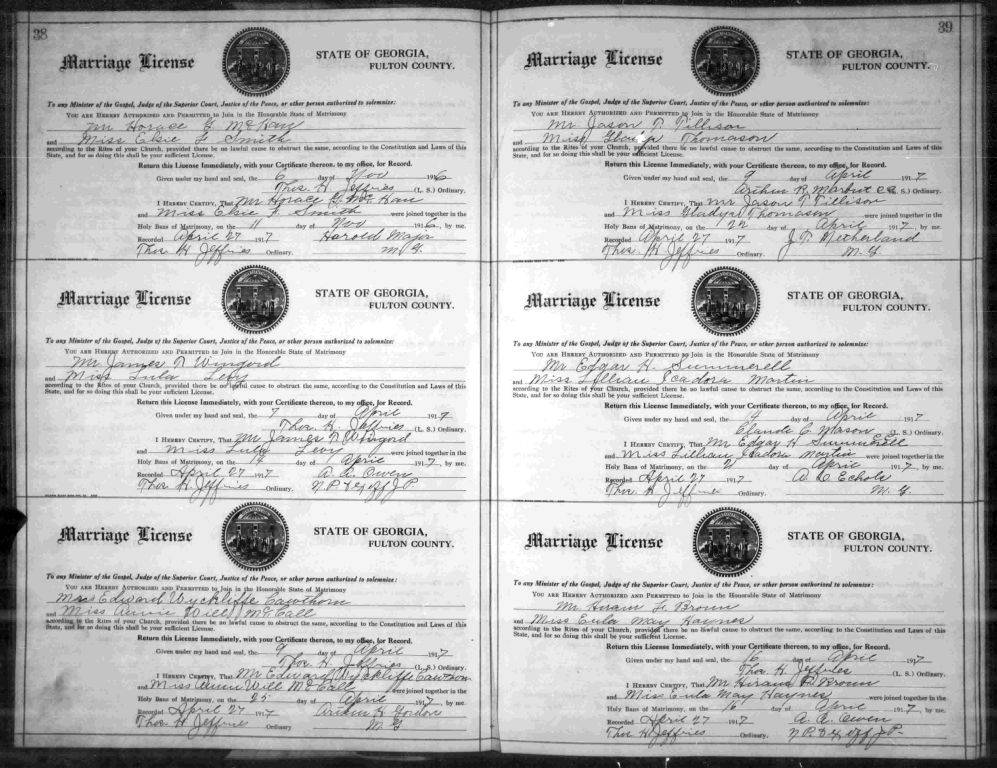 38
Marriage License
STATE OF GEORGIA,
FULTON COUNTY.
To any Minister of the Gospel, Judge of the Superior Court, Justice of the Peace, or other person authorized to solemnize:
YOU ARE HEREBY AUTHORIZED AND PERMITTED to Join in the Honorable State of Matrimony
Mr Horace G McHan
and Miss Elsie F Smith
according to the Rites of your Church, provided there be no lawful cause to obstruct the same, according to the Constitution and Laws of this
State, and for so doing this shall be your sufficient License.
Return this License Immediately, with your Certificate thereon, to my office, for Record.
Given under my hand and seal, the 6 day of Nov 1916
Thos. H Jeffries (L. S.) Ordinary.
I HEREBY CERTIFY, That Mr Horace G Mc Han
and Miss Elsie F Smith were joined together in the
Holy Bans of Matrimony, on the 11 day of Nov 1916, by me.
Recorded April 27 1917 Harold Major
Thos H Jeffries Ordinary. M G
Marriage License
STATE OF GEORGIA,
FULTON COUNTY.
To any Minister of the Gospel, Judge of the Superior Court, Justice of the Peace, or other person authorized to solemnize:
YOU ARE HEREBY AUTHORIZED AND PERMITTED to Join in the Honorable State of Matrimony
Mr James N Wingord
and Miss Lula Levy
according to the Rites of your Church, provided there be no lawful cause to obstruct the same, according to the Constitution and Laws of this
State, and for so doing this shall be your sufficient License.
Return this License Immediately, with your Certificate thereon, to my office, for Record.
Given under my hand and seal, the 7 day of April 1917
Thos. H. Jeffries (L. S.) Ordinary.
I HEREBY CERTIFY, That Mr James N Wingord
and Miss Lula Levy were joined together in the
Holy Bans of Matrimony, on the 14 day of April 1917, by me.
Recorded April 27 1917 A. A. Owen
Thos H Jeffries Ordinary. N.P. & Ex off J P
Marriage License
STATE OF GEORGIA,
FULTON COUNTY.
To any Minister of the Gospel, Judge of the Superior Court, Justice of the Peace, or other person authorized to solemnize:
YOU ARE HEREBY AUTHORIZED AND PERMITTED to Join in the Honorable State of Matrimony
Edward Wyckliffe Cawthorn
and Miss Annie Will McCall
according to the Rites of your Church, provided there be no lawful cause to obstruct the same, according to the Constitution and Laws of this
State, and for so doing this shall be your sufficient License.
Return this License Immediately, with your Certificate thereon, to my office, for Record.
Given under my hand and seal, the 9 day of April 1917
Thos H. Jeffries (L. S.) Ordinary.
I HEREBY CERTIFY, That Mr Edward Wyckliffe Cawthorn
and Miss Annie Will McCall were joined together in the
Holy Bans of Matrimony, on the 25 day of April 1917, by me.
Recorded April 27 1917 Gordon
Thos H Jeffries Ordinary M G
39
Marriage License
STATE OF GEORGIA,
FULTON COUNTY.
To any Minister of the Gospel, Judge of the Superior Court, Justice of the Peace, or other person authorized to solemnize:
YOU ARE HEREBY AUTHORIZED AND PERMITTED to Join in the Honorable State of Matrimony
Mr Jason T Tillison
and Miss Thomason
according to the Rites of your Church, provided there be no lawful cause to obstruct the same, according to the Constitution and Laws of this
State, and for so doing this shall be your sufficient License.
Return this License Immediately, with your Certificate thereon, to my office, for Record.
Given under my hand and seal, the 9 day of April 1917
Arthur R. Marbut (L. S.) Ordinary.
I HEREBY CERTIFY, That Mr Jason T Tillison
and Miss Gladys Thomason were joined together in the
Holy Bans of Matrimony, on the 22 day of April 1917, by me.
Recorded April 27 1917 J. T. Netherland
Thos. H. Jeffries Ordinary. M. G.
Marriage License
STATE OF GEORGIA,
FULTON COUNTY.
To any Minister of the Gospel, Judge of the Superior Court, Justice of the Peace, or other person authorized to solemnize:
YOU ARE HEREBY AUTHORIZED AND PERMITTED to Join in the Honorable State of Matrimony
Mr Edgar H. Summerell
and Miss Lillian Isadora Martin
according to the Rites of your Church, provided there be no lawful cause to obstruct the same, according to the Constitution and Laws of this
State, and for so doing this shall be your sufficient License.
Return this License Immediately, with your Certificate thereon, to my office, for Record.
Given under my hand and seal, the 14 day of April 1917
Claude C. Mason (L. S.) Ordinary.
I HEREBY CERTIFY, That Mr Edgar H Summerell
and Miss Lillian Isadora Martin were joined together in the
Holy Bans of Matrimony, on the 21 day of April 1917, by me.
Recorded April 27 1917 Echols
Thos. H Jeffries Ordinary. M. G.
Marriage License
STATE OF GEORGIA,
FULTON COUNTY.
To any Minister of the Gospel, Judge of the Superior Court, Justice of the Peace, or other person authorized to solemnize:
YOU ARE HEREBY AUTHORIZED AND PERMITTED to Join in the Honorable State of Matrimony
Mr Hiram F Brown
and Miss Eula May Haynes
according to the Rites of your Church, provided there be no lawful cause to obstruct the same, according to the Constitution and Laws of this
State, and for so doing this shall be your sufficient License.
Return this License Immediately, with your Certificate thereon, to my office, for Record.
Given under my hand and seal, the 16 day of April 1917
Thos H. Jeffries (L. S.) Ordinary.
I HEREBY CERTIFY, That Mr Hiram F Brown
and Miss Eula May Haynes were joined together in the
Holy Bans of Matrimony, on the 16 day of April 1917, by me.
Recorded April 27 1917 A. A. Owen
Thos H Jeffries Ordinary. N.P. & Ex off J P